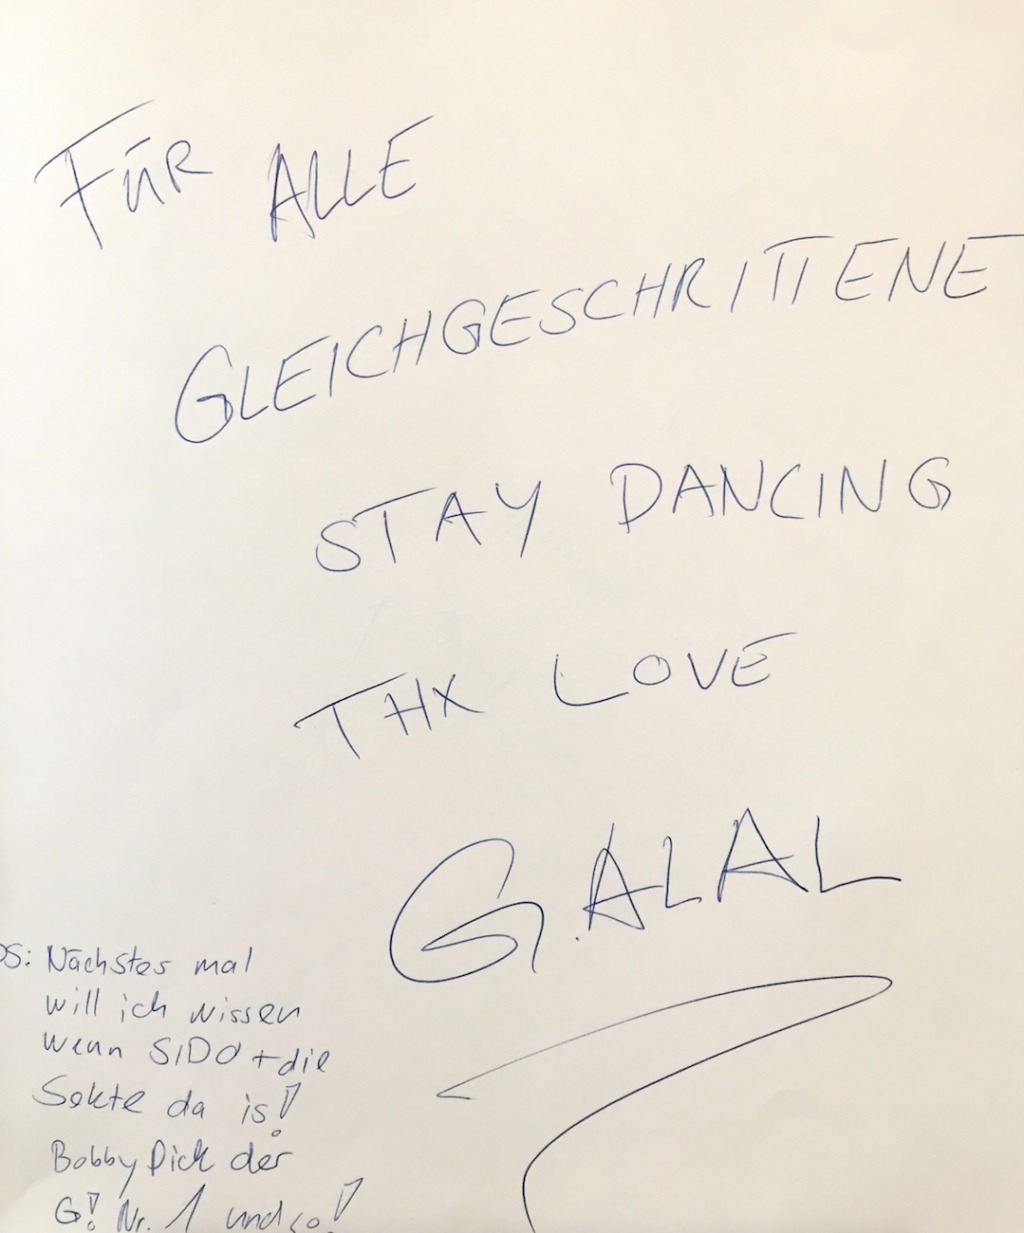 FÜR ALLE
GLEICHGESCHRITTENE
STAY DANCING
THX LOVE
GALAL
PS: Nächstes mal
will ich wissen
wenn SIDO + die
Sekte da is!
Bobby Dick der
G! Nr. 1 und so!